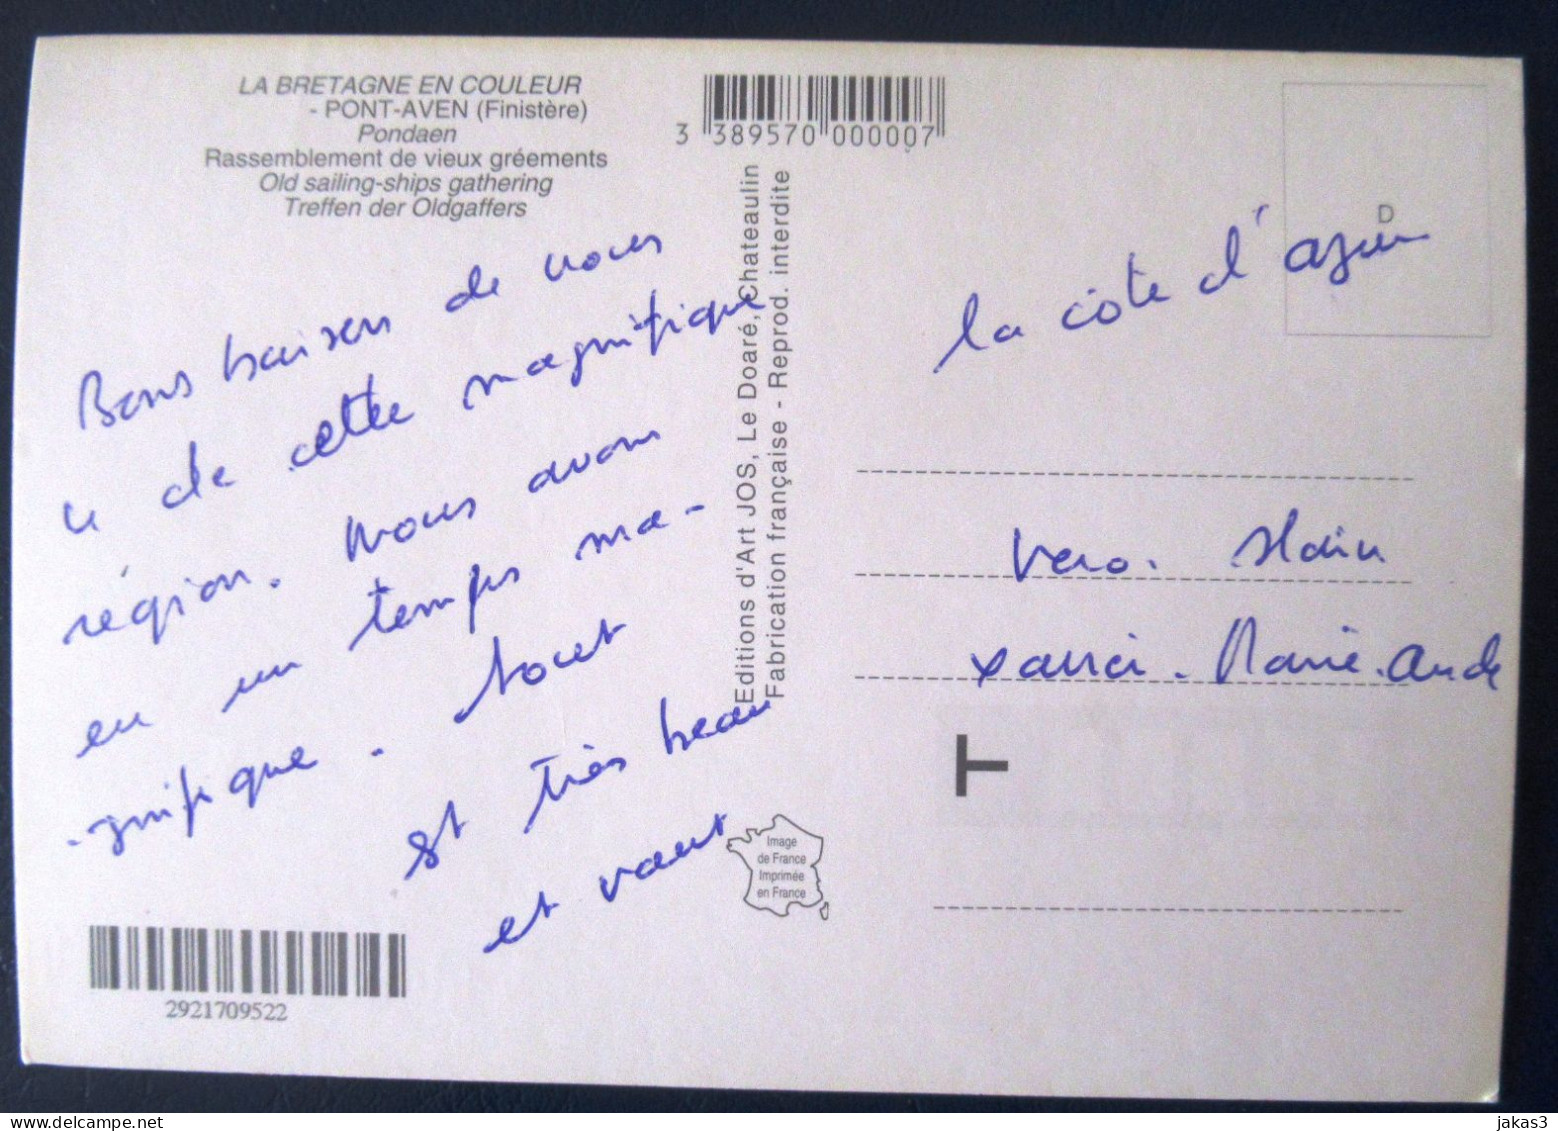 LA BRETAGNE EN COULEUR
- PONT-AVEN (Finistère)
Pondaen
Rassemblement de vieux gréements
Old sailing-ships gathering
Treffen der Oldgaffers
3 389570 000007
Editions d'Art JOS, Le Doaré, Chateaulin
Fabrication française - Reprod. interdite
D
Bons baisers de nous
4 de cette magnifique
région. Nous avons
eu un temps ma-
-gnifique. tout
st très beau
et vaut
la côte d'azur
Vero. Alain
Marie.Aude
T
Image
de France
Imprimée
en France
2921709522
jakas3